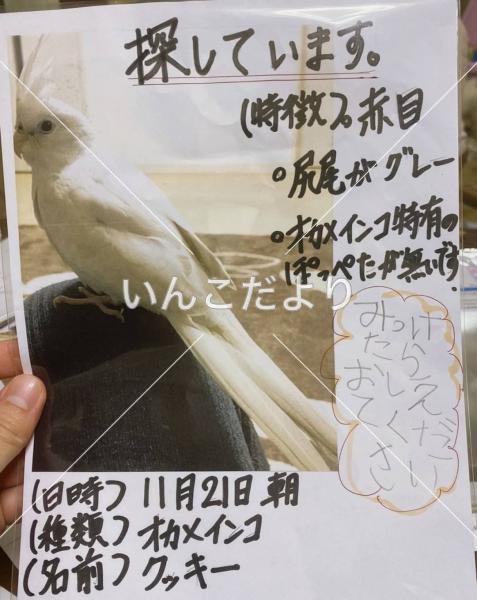 探しています。
(特徴)○赤目
○尻尾がグレー
○オカメインコ特有の
ほっぺたが無いです
みつけ
たら
おしえ
てくだ
さい
いんこだより
(日時) 11月21日 朝
(種類) オカメインコ
(名前) クッキー